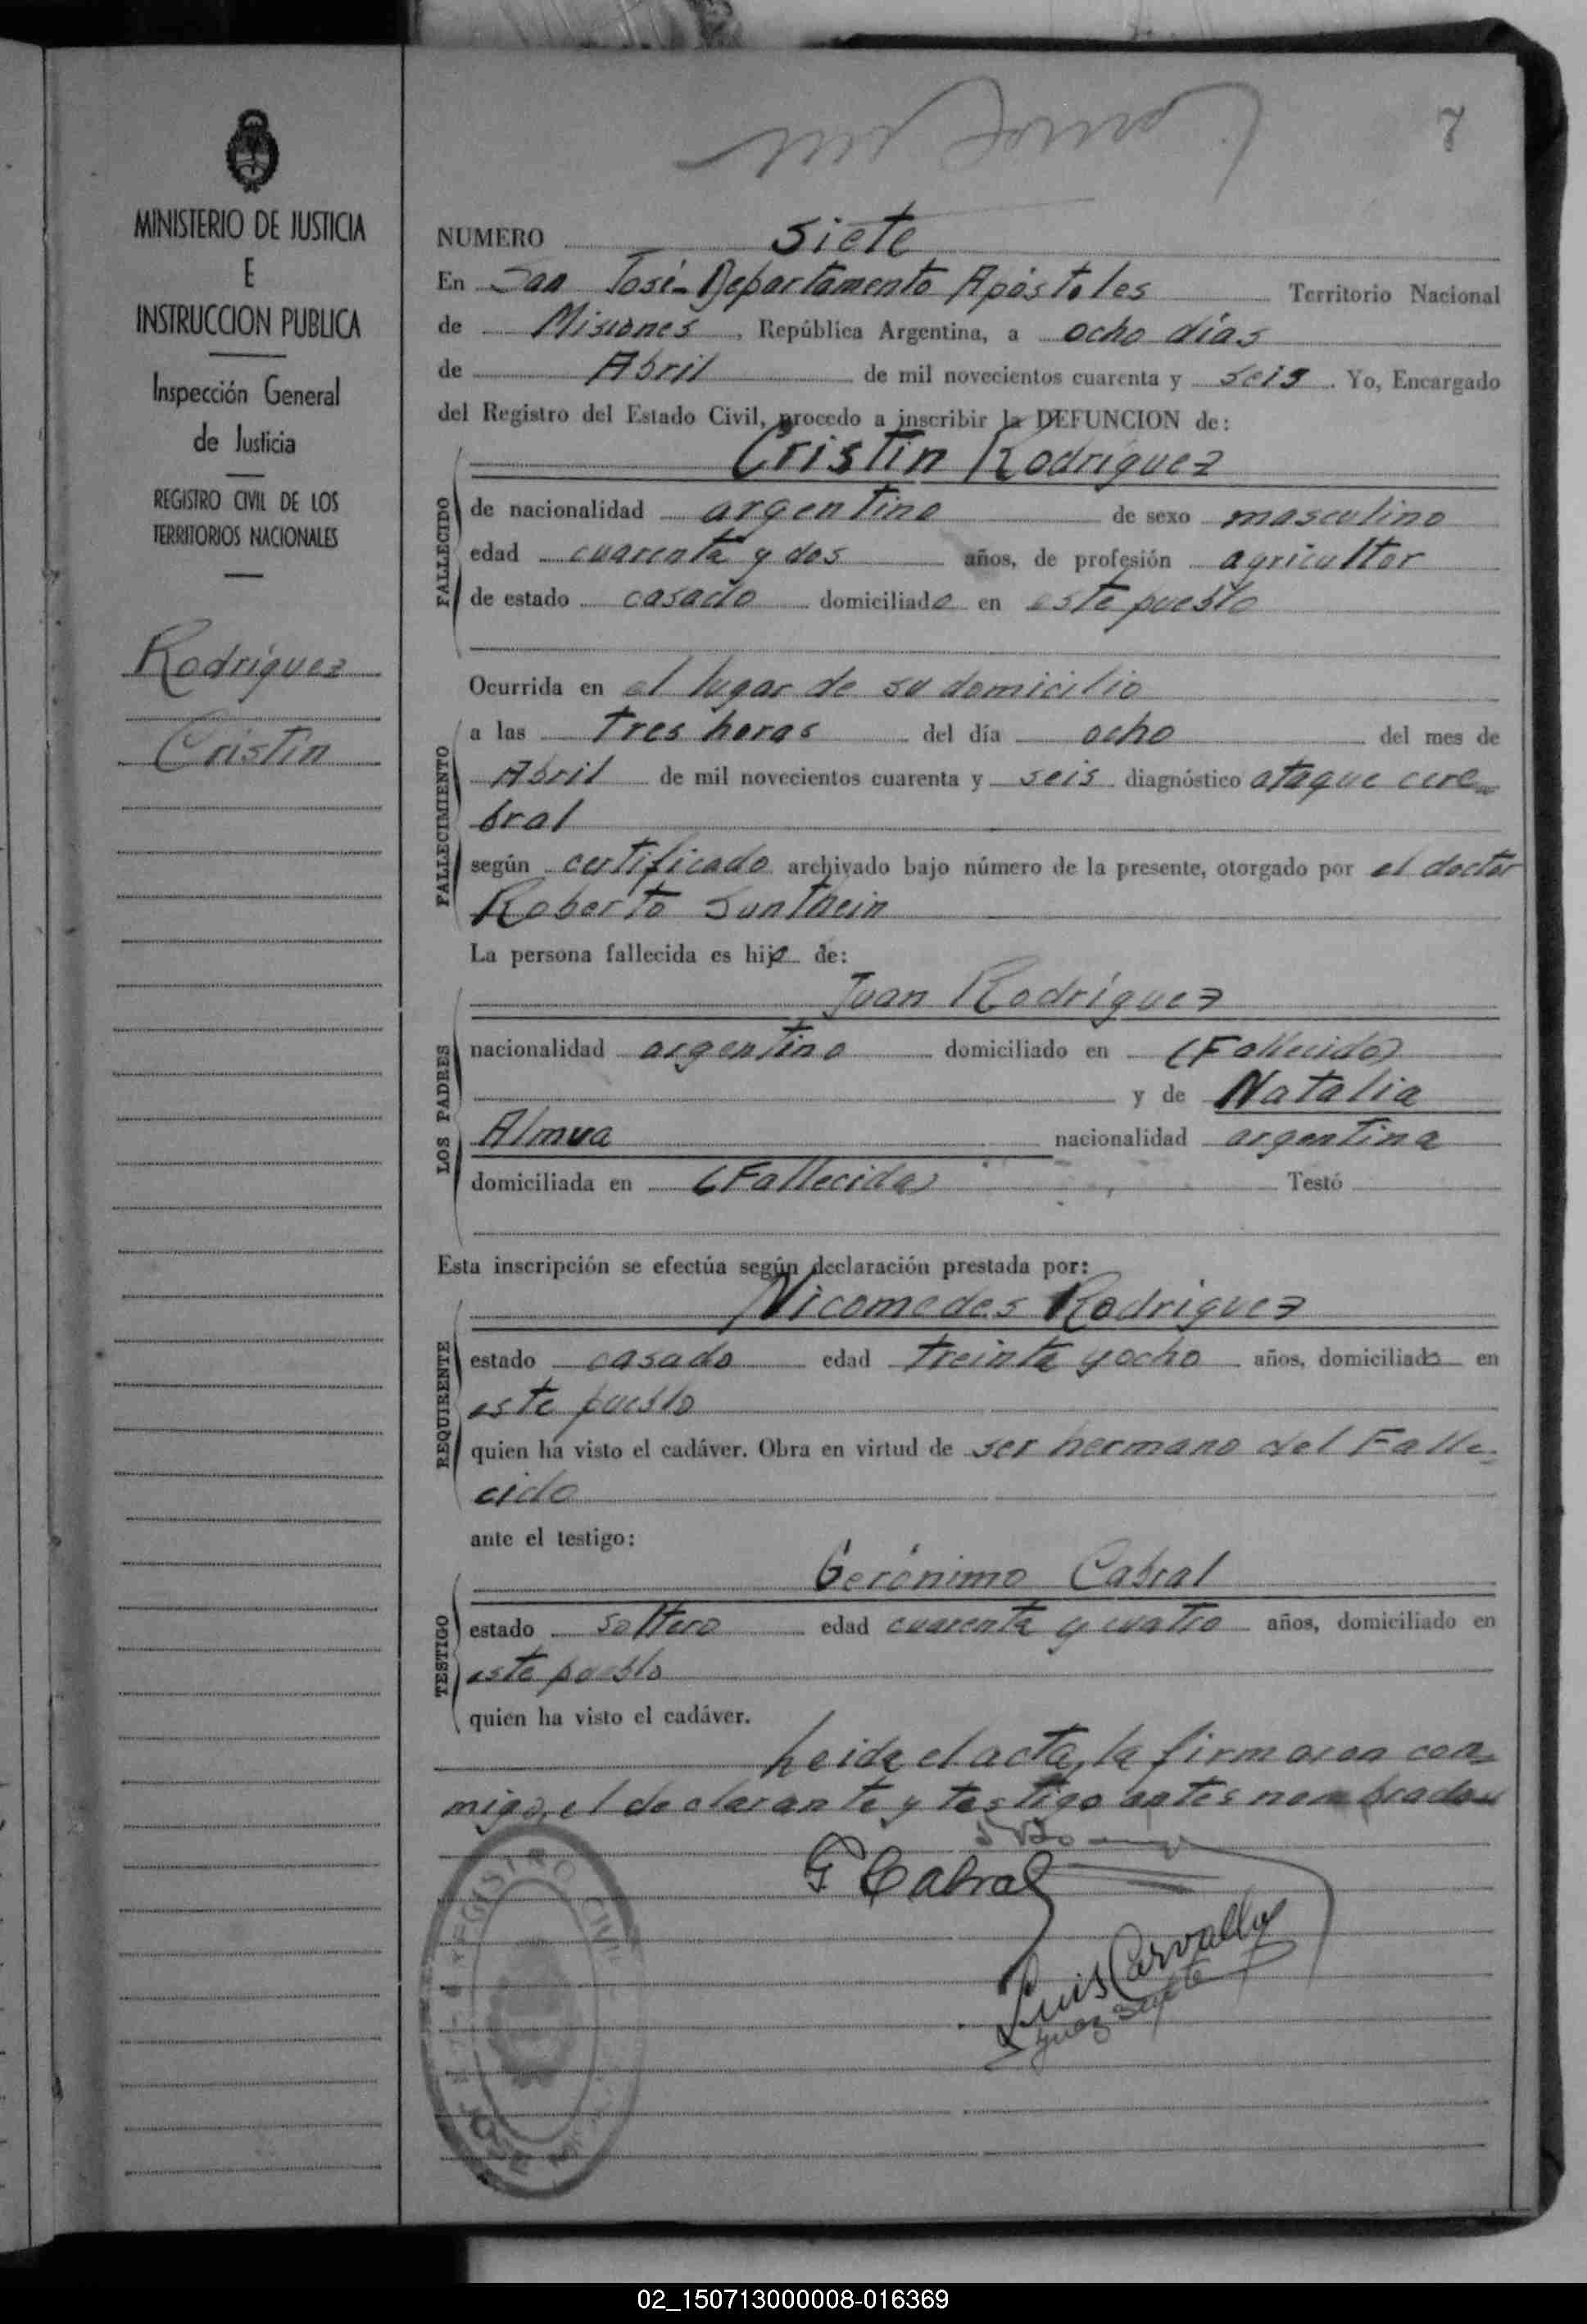 7
MINISTERIO DE JUSTICIA
E
INSTRUCCION PUBLICA
Inspección General
de Justicia
REGISTRO CIVIL DE LOS
TERRITORIOS NACIONALES
Rodríguez
Cristin
NUMERO siete
En San José - Departamento Apóstoles Territorio Nacional
de Misiones, República Argentina, a ocho días
de Abril de mil novecientos cuarenta y seis. Yo, Encargado
del Registro del Estado Civil, procedo a inscribir la DEFUNCION de:
Cristin Rodríguez
FALLECIDO
de nacionalidad argentino de sexo masculino
edad cuarenta y dos años, de profesión agricultor
de estado casado domiciliado en este pueblo
FALLECIMIENTO
Ocurrida en el lugar de su domicilio
a las tres horas del día ocho del mes de
Abril de mil novecientos cuarenta y seis diagnóstico ataque cere-
bral
según certificado archivado bajo número de la presente, otorgado por el doctor
Roberto Sunthein
La persona fallecida es hijo de:
LOS PADRES
Juan Rodríguez
nacionalidad argentino domiciliado en (Fallecido)
y de Natalia
Almua nacionalidad argentina
domiciliada en (Fallecida) Testó
Esta inscripción se efectúa según declaración prestada por:
REQUIRENTE
Nicomedes Rodriguez
estado casado edad treinta y ocho años, domiciliado en
este pueblo
quien ha visto el cadáver. Obra en virtud de ser hermano del Falle-
cido
ante el testigo:
TESTIGO
Gerónimo Cabral
estado soltero edad cuarenta y cuatro años, domiciliado en
este pueblo
quien ha visto el cadáver.
Leida el acta, la firmaron con-
migo, el declarante y testigo antes nombrados
G Cabral
Luis Carvallo
Juez
REGISTRO CIVIL
JOSE
02_150713000008-016369